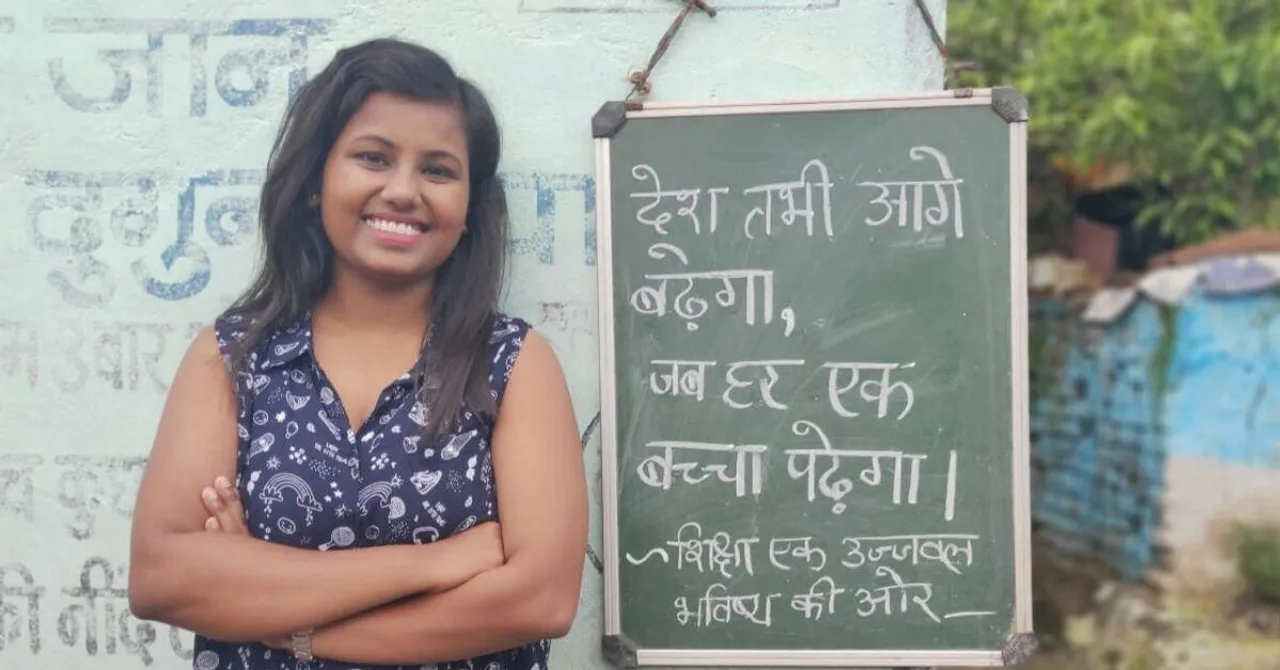 जान
दुगुन
उबार
देश तभी आगे
बढ़ेगा,
जब हर एक
बच्चा पढ़ेगा।
शिक्षा एक उज्जवल
भविष्य की ओर
की नींद